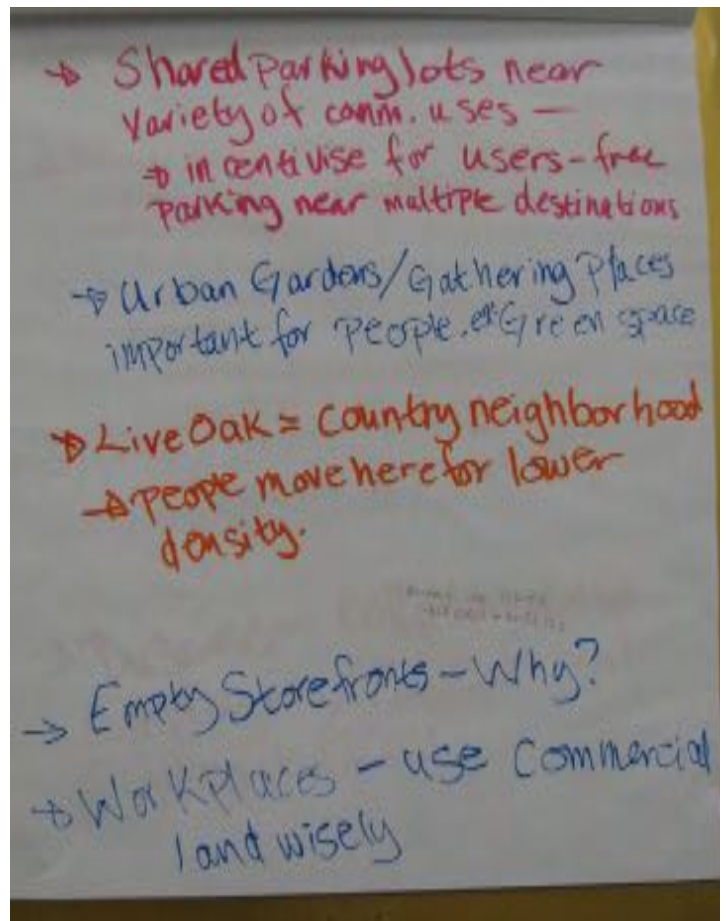 → Shared parking lots near
variety of comm. uses —
→ incentivise for users - free
parking near multiple destinations
→ Urban Gardens/Gathering Places
important for people. Green space
→ Live Oak = Country neighborhood
→ people move here for lower
density.
→ Empty Storefronts - Why?
→ Workplaces - use commercial
land wisely